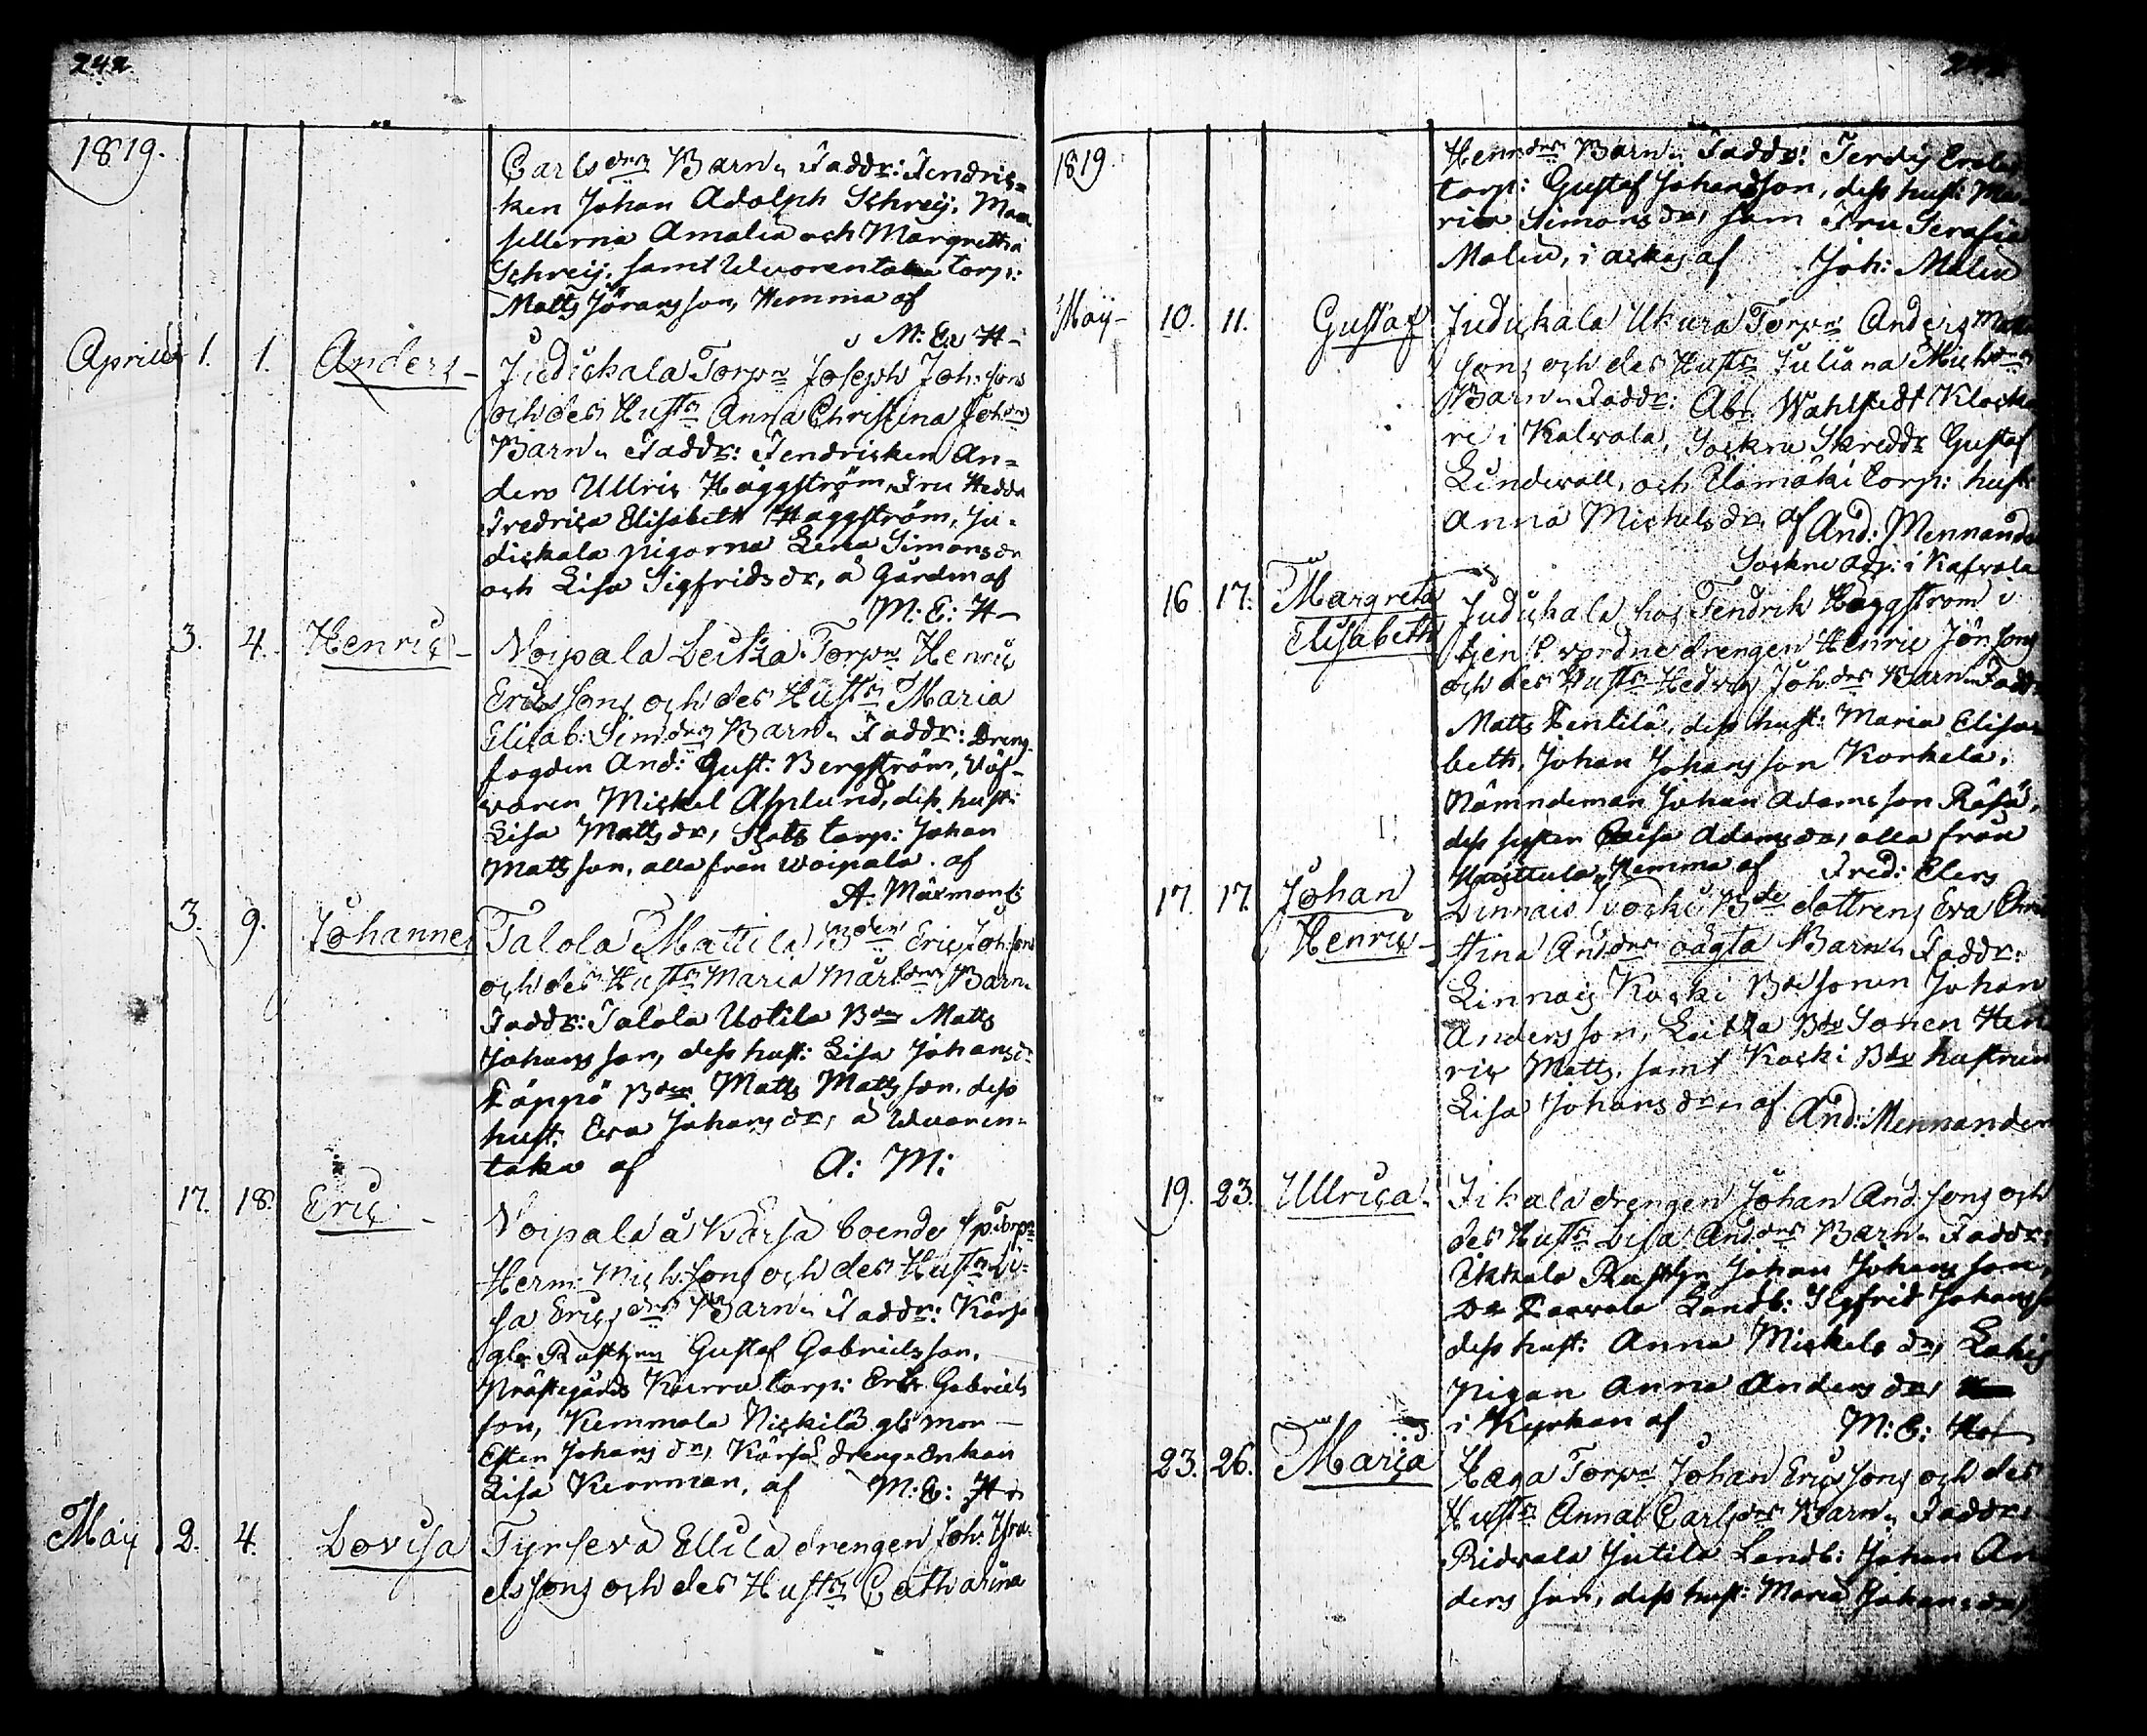 242.
1819.
Carls drs Barn. Faddr: Fendric=
ken Johan Adolph Schreij, Mam
sellerna Amalia och Margretha
Schreij, samt Uvarentaka torp:
Matts Jöransson, Hemma af
M: E: H-
Aprilis 1. 1. Anders - Judickala Torpn Joseph Joh: sons
och des Hustr Anna Christina Joh dr
Barn. Faddr: Fendricken An=
ders Ullric Häggström, Fru Hedda
Fredrica Elisabeth Häggström, Ju=
dickala pigorna Lena Simonsdr
och Lisa Sigfridsdr, å Gården af
M: E: H-
3. 4. Henric - Voipala Leikka Torpn Henric
Ericssons och des Hustr Maria
Elisab: Simdrs Barn. Faddr: Dreng
fogden And: Gust: Bergström, Väf-
varen Mickel Asplund, dess hust:
Lisa Mattsdr, Slotts torp: Johan
Mattsson, alla från Woipala. af
A. Märmon
3. 9. Johannes Talola Mattila Bden Eric Joh: sons
och des Hustr Maria Mårt drs Barn.
Faddr: Talola Uotila Bden Matts
Johansson, dess hust: Lisa Johansdr
Täppö Bden Matts Mattsson, dess
hust: Eva Johansdr, å Uvaren=
taka af A: M:
17. 18. Eric - Voipala å Kärsä boende sp: Torpn
Herm: Mich: sons och des Hustr Li=
sa Erics drs Barn. Faddr: Kärsä
gln Rusth Gustaf Gabrielsson,
Prästgårds Kaerra torp: Eric Gabriels
son, Kemmola Nickilä gl: mor
Ester Johansdr, Kärsä drenge Enkan
Lisa Kernman, af M: E: H
Maij 2. 4. Lovisa Tyrfevä Ellilä drengen Joh: Isra=
elssons och des Hustr Catharina
1819
Henr drs Barn. Faddr:
torp: Gustaf Johansson, dess hust: Ma
ria Simonsdr, sam Fru Serafia
Malin, i af Joh: Malin
Maij - 10. 11. Gustaf Judickala Ukura Torpn Anders Matt
sons och des Hustr Juliana Mich drs
Barn. Faddr: Abr. Wahlstedt Klocka
re i Kalvola, Sockne Skreddr Gustaf
Lindevall, och Ylömäki torp: hust:
Anna Mickelsdr, af And: Mennander
Sockne adj: i Kalvola
16 17. Margreta Judickala hos Fendrik Häggström i
Elisabeth tjenst vordne drengen Henric Jön sons
och des Hustr Hedvig Joh drs Barn. Faddr
Matts Tentilä, dess hust: Maria Elisa
beth, Johan Johansson Korkela,
Nämndeman Johan Adamsson Räsä,
dess syster Caisa Adamsdr, alla från
Huittula, Hemma af Fred: Elers
17. 17. Johan Linnais Koski Bde dottrens Eva Chri
Henric - stina And drs oägta Barn. Faddr:
Linnais Koski Bde sonen Johan
Andersson, Leikka Bde Sonen Hen
ric Matts. samt Koski Bde hustrun
Lisa Johansdr. af And: Mennander
19. 23. Ullrica. Jikala drengen Johan And. sons och
des Hustr Lisa And drs Barn. Faddr:
Ikkala Rusth Johan Johansson,
Landb: Sigfrid Johansson
dess hust: Anna Mickelsdr, Lahis
Pigan Anna Andersdr,
i Kyrkan af M: E: Hof
23. 26. Maria Haga Torpn Johan Ericssons och des
Hustr Anna Carls drs Barn. Faddr:
Ridvala Jutila Landb: Johan An
dersson, dess hust: Maria Johansdr,